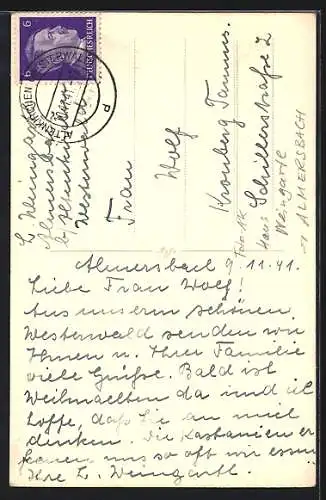 6 DEUTSCHES REICH 6
ALTENKIRCHEN
d
L. Weingartl
Almersbach
b/Altenkirchen
Westerwald
Frau
Wolf
Kronberg Taunus.
Schillerstraße 2
Haus Weingartl
Foto AK
→ ALMERSBACH
Almersbach 9.11.41.
Liebe Frau Wolf!
Aus unserm schönen
Westerwald senden wir
Ihnen u. Ihrer Familie
viele Grüße. Bald ist
Weihnachten da und ich
hoffe, daß Sie an mich
denken. Die Kastanien er
kennen uns so oft wir essen
Ihre L. Weingartl.